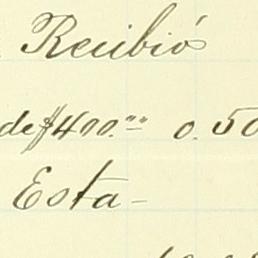 Recibió
de $400.00 0.50
Esta-